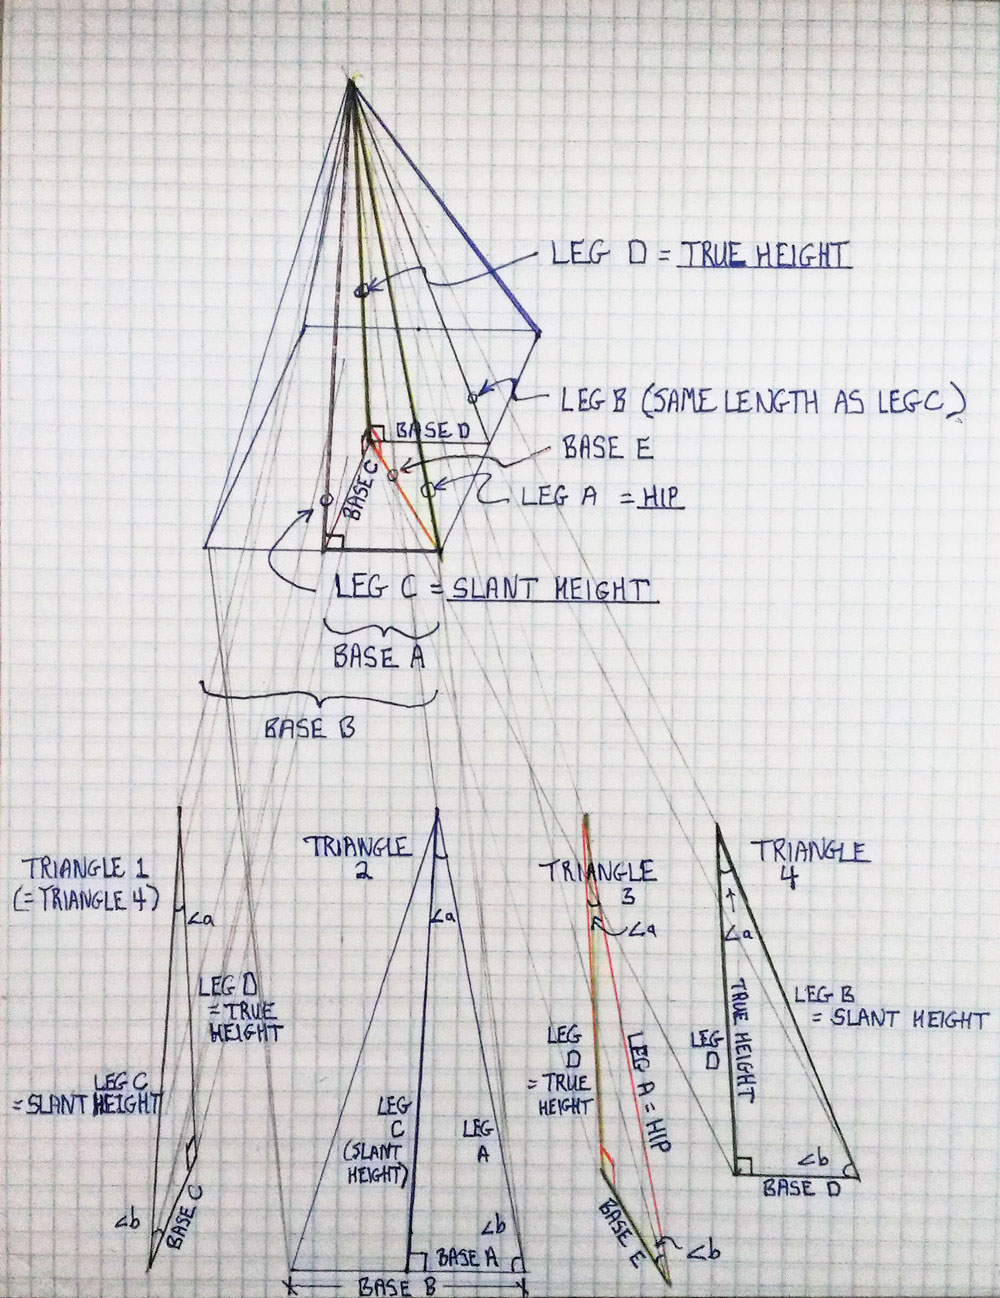 LEG D = TRUE HEIGHT
LEG B (SAME LENGTH AS LEG C)
BASE D
BASE E
BASE C
LEG A = HIP
LEG C = SLANT HEIGHT
BASE A
BASE B
TRIANGLE 1
(= TRIANGLE 4)
∠a
LEG D
= TRUE
HEIGHT
LEG C
= SLANT HEIGHT
∠b
BASE C
TRIANGLE
2
∠a
LEG
C
(SLANT
HEIGHT)
LEG
A
∠b
BASE A
BASE B
TRIANGLE
3
∠a
LEG
D
= TRUE
HEIGHT
LEG A = HIP
BASE E
∠b
TRIANGLE
4
∠a
LEG B
= SLANT HEIGHT
LEG
D
TRUE HEIGHT
∠b
BASE D